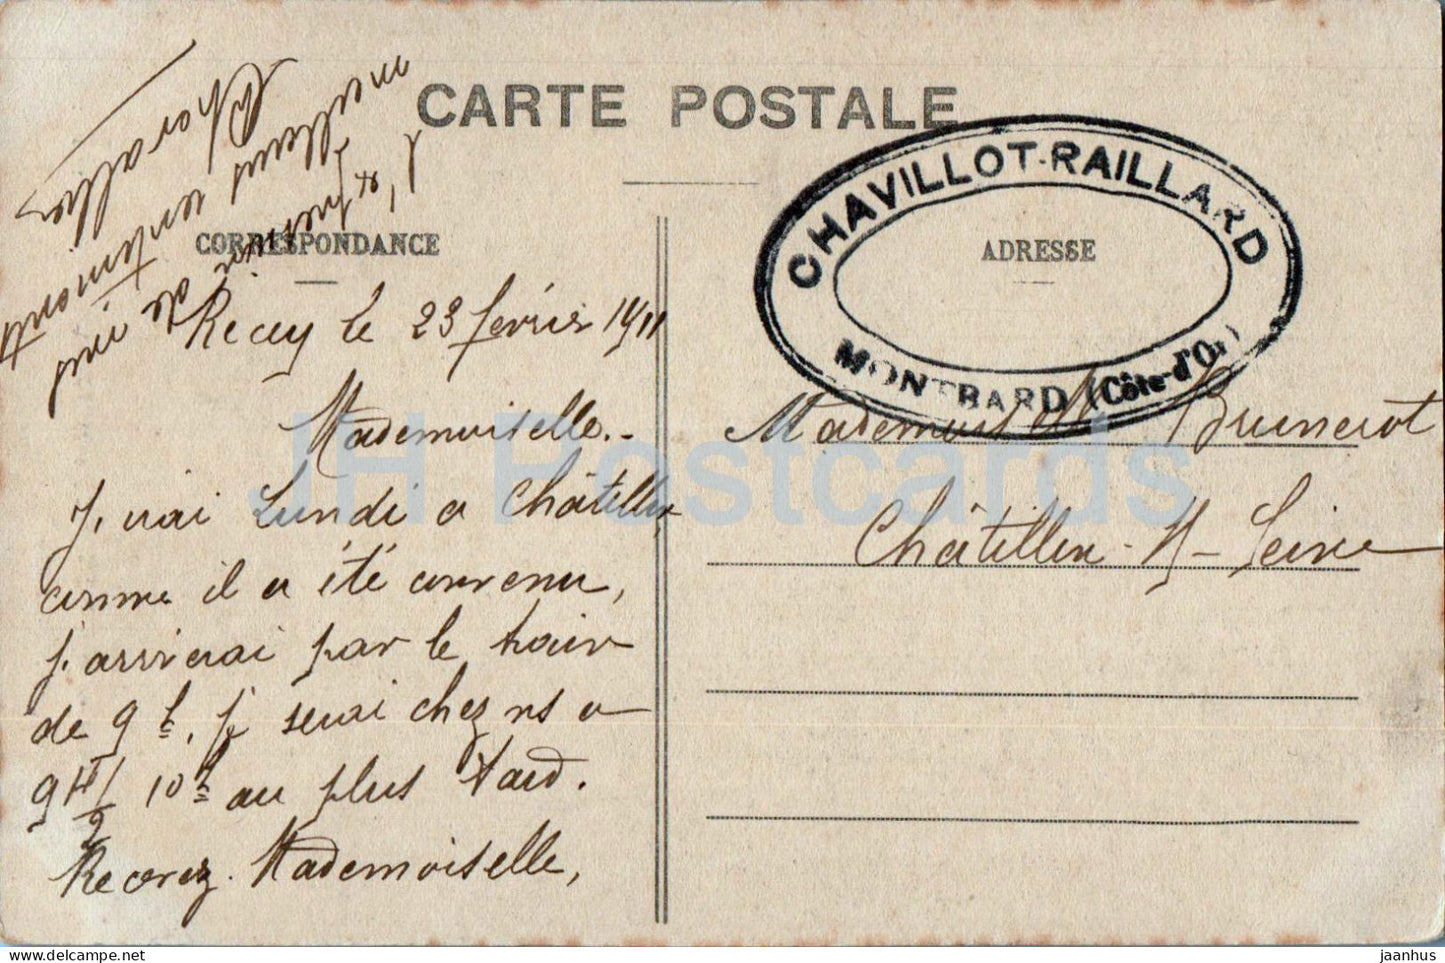 CARTE POSTALE
CORRESPONDANCE
ADRESSE
CHAVILLOT-RAILLARD
MONTBARD (Côte-d'Or)
Recey le 23 février 1911
Mademoiselle.-
J'irai Lundi a Châtillon,
comme il a été convenu,
j'arriverai par le train
de 9 h, je serai chez vs a
9 h 1/2 10 h au plus tard.
Recevez Mademoiselle,
meilleurs sentiments
Mademoiselle Brunerot
Châtillon-s-Seine
JH Postcards
jaanhus